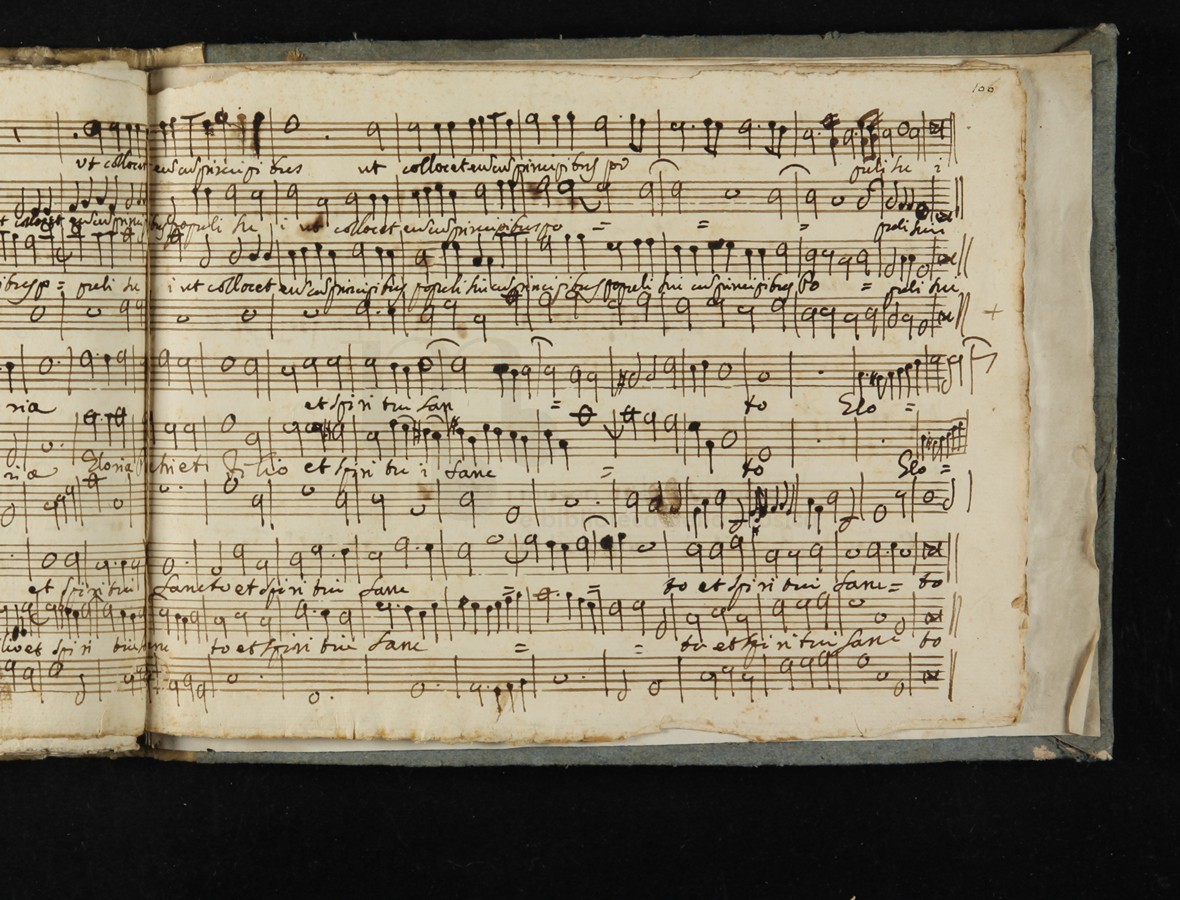 106
ut collocet eum cum principibus ut collocet eum cum principibus po puli su i
ut collocet eum cum principibus populi su i ut collocet eum cum principibus po = = = puli sui
ibus p = puli su i ut collocet eum cum principibus populi sui cum principibus populi sui cum principibus Po = puli sui
ria et spiri tui san = to Glo =
ria Gloria Patri et Filio et spiri tu i sanc = to Glo =
et spiritui Sancto et spiri tui sanc = = to et spiri tui sanc = to
lio et spiri tui sanc to et spiri tui sanc = = to et spiri tui sanc to